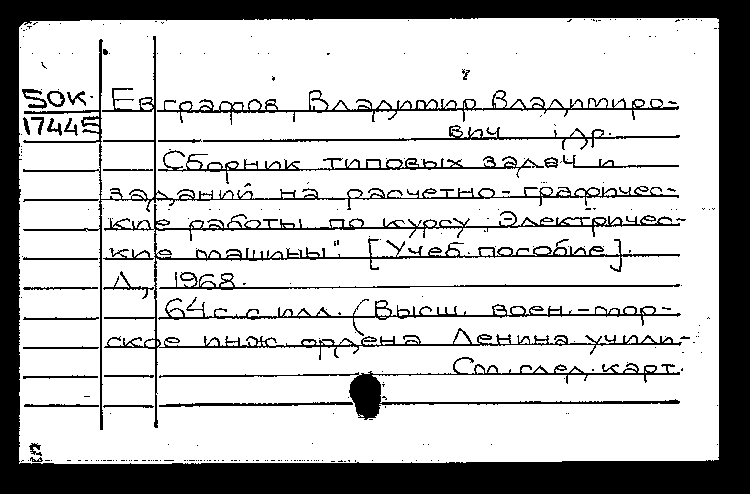 SOK
17445
Евграфов, Владимир Владимиро-
вич и др.
Сборник типовых задач и
заданий на расчетно-графичес-
кие работы по курсу „Электричес-
кие машины". [Учеб. пособие].
Л., 1968.
64 с. с илл. (Высш. воен.-мор-
ское инж. ордена Ленина учили-
См. след. карт.